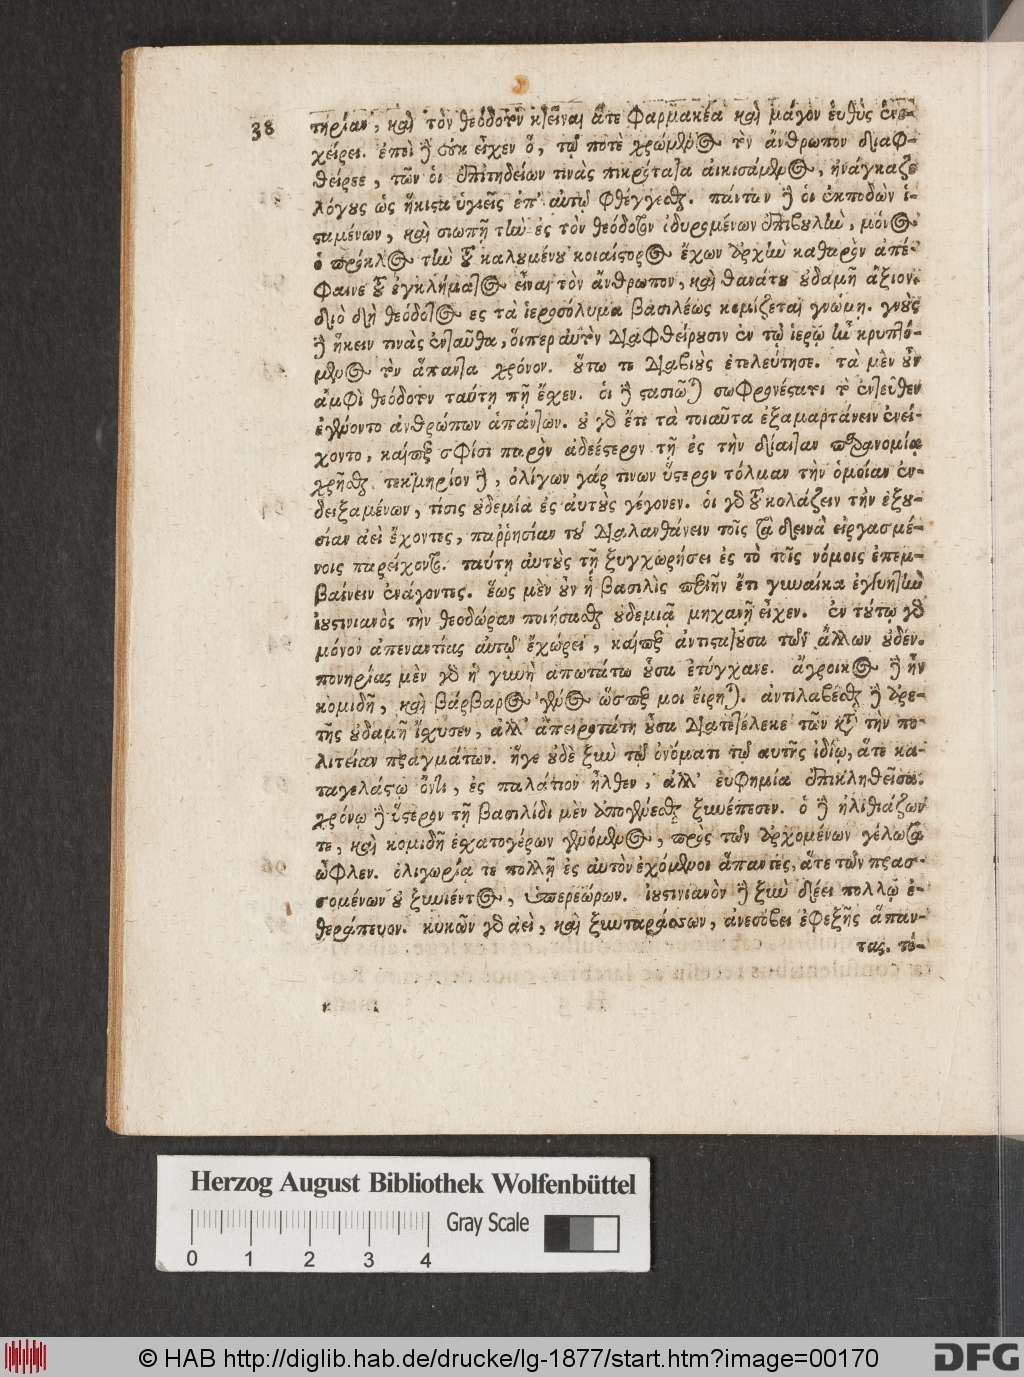 38
τηρίαν, καὶ τὸν θεόδοτον κτεῖναι ἅτε φαρμακέα καὶ μάγον εὐθὺς ἐνε-
χείρει. ἐπεὶ δὲ οὐκ εἶχεν ὅ, τῳ ποτὲ χρώμενος τὸν ἄνθρωπον διαφ-
θείρειε, τῶν οἱ ἐπιτηδείων τινὰς πικρότατα αἰκισάμενος, ἠνάγκαζε
λόγους ὡς ἥκιστα ὑγιεῖς ἐπ' αὐτῷ φθέγγεσθαι. πάντων δὲ οἱ ἐκποδὼν ἱ-
σταμένων, καὶ σιωπῇ τὴν ἐς τὸν θεόδοτον ὀδυρομένων ἐπιβουλὴν, μόνος
ὁ πρόκλος τὴν τοῦ καλουμένου κοιαίστορος ἔχων ἀρχὴν καθαρὸν ἀπέ-
φαινε τοῦ ἐγκλήματος εἶναι τὸν ἄνθρωπον, καὶ θανάτου οὐδαμῆ ἄξιον.
διὸ δὴ θεόδοτος ες τὰ ἱεροσόλυμα βασιλέως κομίζεται γνώμῃ. γνοὺς
δὲ ἥκειν τινὰς ἐνταῦθα, οἵπερ αὐτὸν διαφθείρουσιν ἐν τῷ ἱερῷ ἦν κρυπτό-
μενος τὸν ἅπαντα χρόνον. οὕτω τε διαβιοὺς ἐτελεύτησε. τὰ μὲν οὖν
ἀμφὶ θεόδοτον ταύτῃ πῃ ἔχεν. οἱ δὲ στασιῶται σωφρονέστατοι τὸ ἐντεῦθεν
ἐγένοντο ἀνθρώπων ἁπάντων. οὐ γὰρ ἔτι τὰ τοιαῦτα ἐξαμαρτάνειν ἠνεί-
χοντο, καίπερ σφίσι παρὸν ἀδεέστερον τῇ ἐς τὴν δίαιταν παρανομίᾳ
χρῆσθαι. τεκμηρίον δὲ, ὀλίγων γάρ τινων ὕστερον τόλμαν τὴν ὁμοίαν ἐν-
δειξαμένων, τίσις οὐδεμία ἐς αὐτοὺς γέγονεν. οἱ γὰρ τοῦ κολάζειν τὴν ἐξου-
σίαν ἀεὶ ἔχοντες, παῤῥησίαν τοῦ διαλανθάνειν τοῖς τὰ δεινὰ εἰργασμέ-
νοις παρείχοντο. ταύτῃ αὐτοὺς τῇ ξυγχωρήσει ἐς τὸ τοῖς νόμοις ἐπεμ-
βαίνειν ἐνάγοντες. ἕως μὲν οὖν ἡ βασιλὶς περιῆν ἔτι γυναίκα ἐγγυητὴν
ἰουστινιανὸς τὴν θεοδώραν ποιήσασθαι οὐδεμιᾷ μηχανῇ εἶχεν. ἐν τούτῳ γὰρ
μόνον ἀπεναντίας αὐτῷ ἐχώρει, καίπερ ἀντιστατοῦσα τῶν ἄλλων οὐδέν.
πονηρίας μὲν γὰρ ἡ γυνὴ ἀπωτάτω οὖσα ἐτύγχανε. ἄγροικος δὲ ἦν
κομιδῇ, καὶ βάρβαρος γένος ὥσπερ μοι εἴρηται. ἀντιλαβέσθαι δὲ ἀρε-
τῆς οὐδαμῆ ἴσχυσεν, ἀλλ' ἀπειροτάτη οὖσα διατετέλεκε τῶν κατὰ τὴν πο-
λιτείαν πραγμάτων. ἥγε οὐδὲ ξὺν τῷ ὀνόματι τῷ αυτῆς ἰδίῳ, ἅτε κα-
ταγελάστῳ ὄντι, ἐς παλάτιον ἦλθεν, ἀλλ' εὐφημία ἐπικληθεῖσα.
χρόνῳ δὲ ὕστερον τῇ βασιλίδι μὲν ἀπογενέσθαι ξυνέπεσεν. ὁ δὲ ἠλιθιάζων
τε, καὶ κομιδῆ ἐσχατογέρων γενόμενος, πρὸς τῶν ἀρχομένων γέλωτα
ὦφλεν. ὀλιγωρίᾳ τε πολλῇ ἐς αὐτὸν ἐχόμενοι ἅπαντες, ἅτε τῶν πρασ-
σομένων οὐ ξυνιέντος, ὑπερεώρων. ἰουστινιανὸν δὲ ξὺν δέει πολλῷ ἐ-
θεράπευον. κυκῶν γὰρ ἀεὶ, καὶ ξυνταράσσων, ἀνεσόβει ἐφεξῆς ἅπαν-
τας. τό-
Herzog August Bibliothek Wolfenbüttel
Gray Scale
0 1 2 3 4
© HAB http://diglib.hab.de/drucke/lg-1877/start.htm?image=00170
DFG